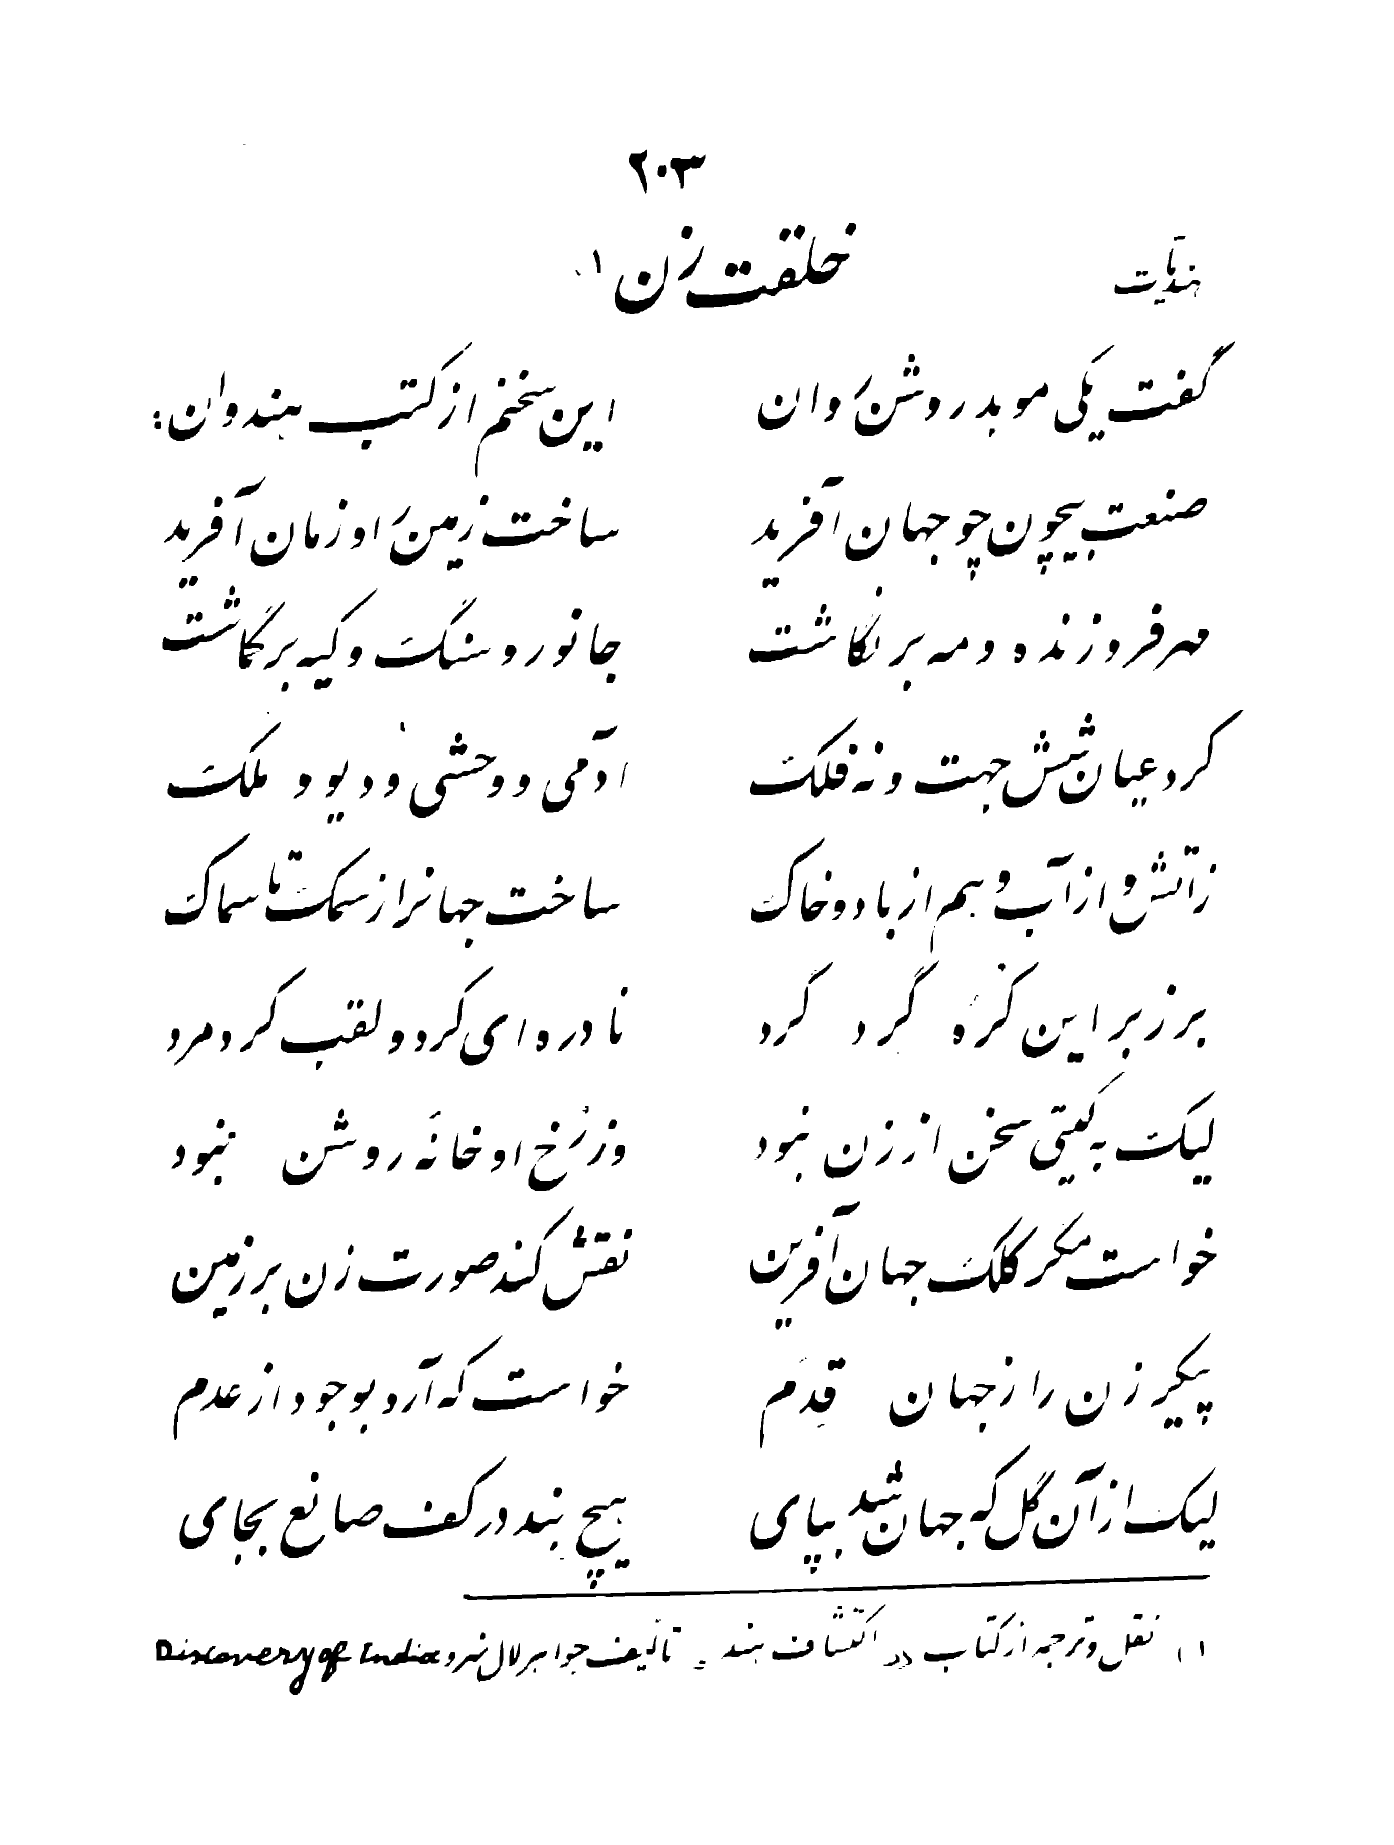 ۲۰۳
هندیات
خلقت زن ۱
گفت یکی موبد روشن روان این سخنم از کتب هندوان:
صنعت بیچون چو جهان آفرید ساخت زمین را و زمان آفرید
مهر فروزنده و مه بر نگاشت جانور و سنگ و گیه بر گماشت
کرد عیان شش جهت و نه فلک آدمی و وحشی و دیو و ملک
زآتش و از آب و هم از باد و خاک ساخت جهانرا ز سمک تا سماک
بر زبر این کُرَه گرد گرد نادره ای کرد و لقب کرد مرد
لیک به گیتی سخن از زن نبود وز رُخ او خانَه روشن نبود
خواست مگر کلک جهان آفرین نقش کند صورت زن بر زمین
پیکر زن را ز جهان قِدَم خواست که آرد بوجود از عدم
لیک از آن گل که جهان شد بپای هیچ نبد در کف صانع بجای
۱) نقل و ترجمه از کتاب «اکتشاف هند» تألیف جواهر لال نهرو Discovery of India